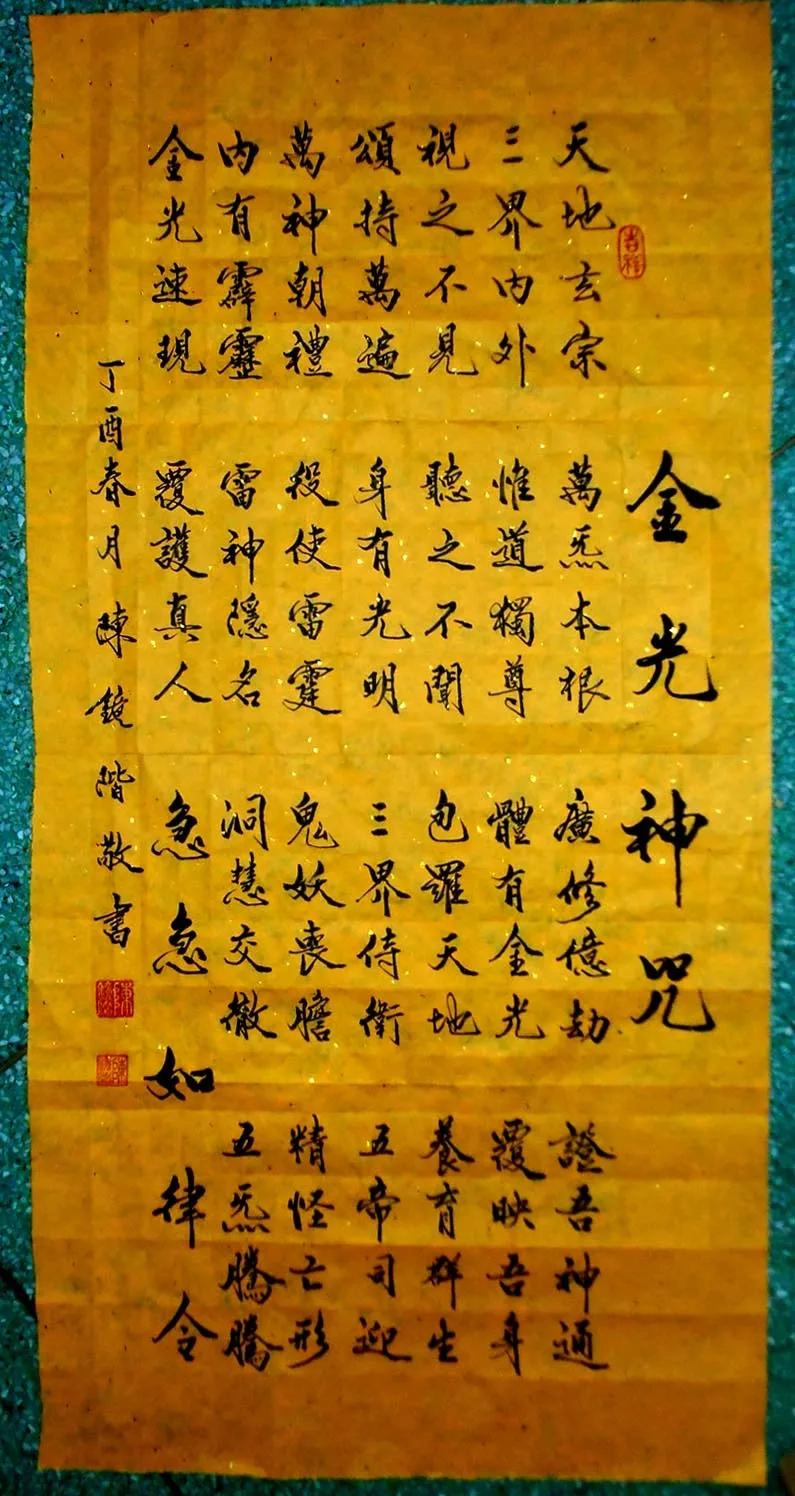 吉祥
金光神咒
天地玄宗 萬炁本根 廣修億劫 證吾神通
三界内外 惟道獨尊 體有金光 覆映吾身
視之不見 聽之不聞 包羅天地 養育群生
頌持萬遍 身有光明 三界侍衛 五帝司迎
萬神朝禮 役使雷霆 鬼妖喪膽 精怪亡形
内有霹靂 雷神隱名 洞慧交徹 五炁騰騰
金光速現 覆護真人 急急如律令
丁酉春月陳鏡階敬書